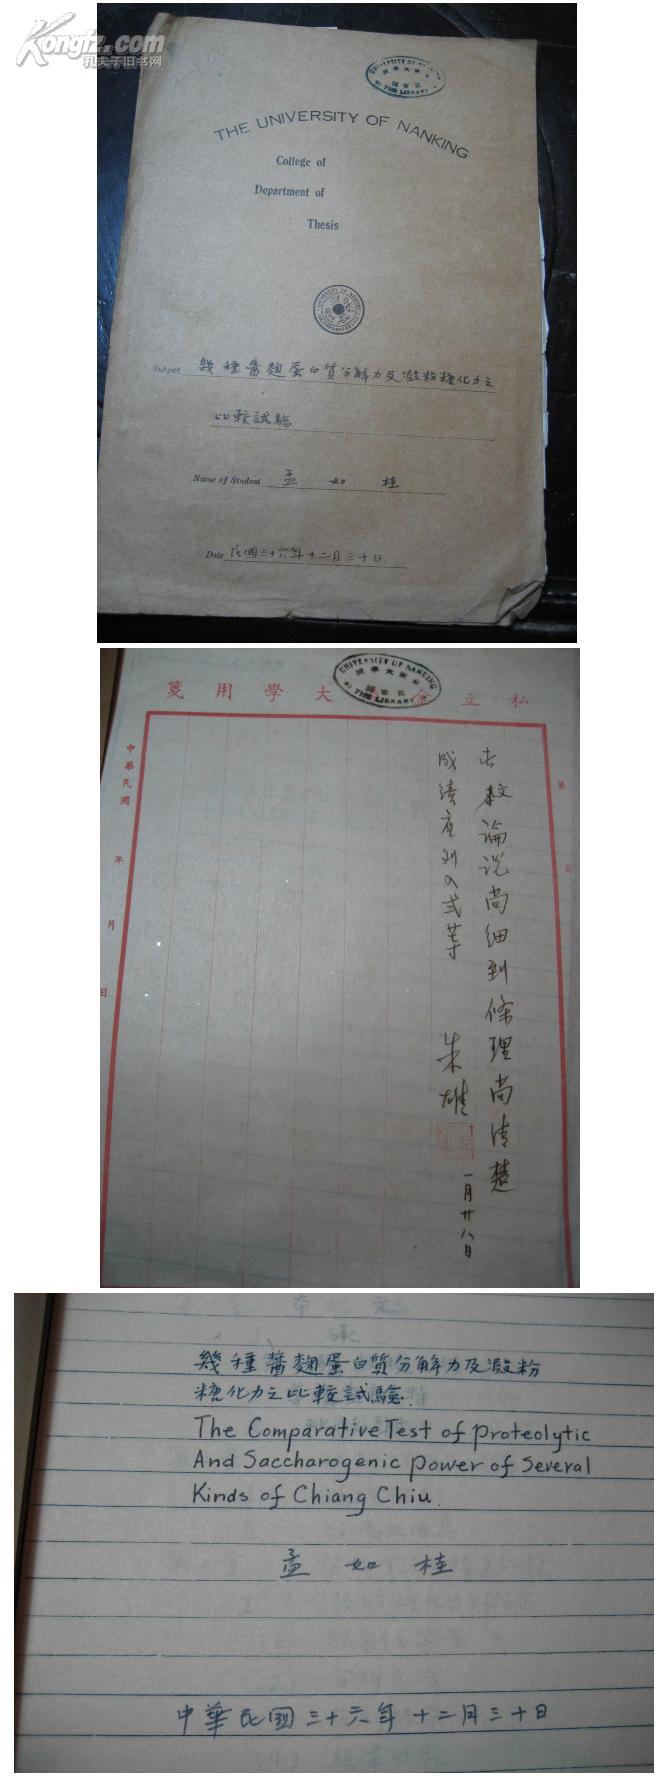 Kongfz.com
孔夫子旧书网
UNIVERSITY OF NANKING
THE LIBRARY
THE UNIVERSITY OF NANKING
College of
Department of
Thesis
Subject 幾種醬麴蛋白質分解力及澱粉糖化力之
比較試驗
Name of Student 孟如桂
Date 民國三十六年十二月三十日
私立金大學用箋
UNIVERSITY OF NANKING
THE LIBRARY
論說尚細到條理尚清楚
成績應列入弍等
朱雄
一月廿八日
中華民國 年 月 日
幾種醬麴蛋白質分解力及澱粉
糖化力之比較試驗.
The Comparative Test of Proteolytic
And Saccharogenic Power of Several
Kinds of Chiang Chiu.
孟如桂
中華民國三十六年十二月三十日